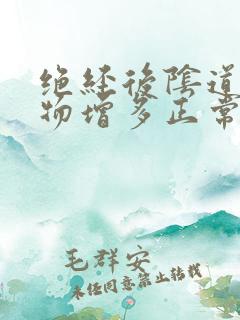 绝经後陰道
物增多正常
毛群安
未经同意禁止转载